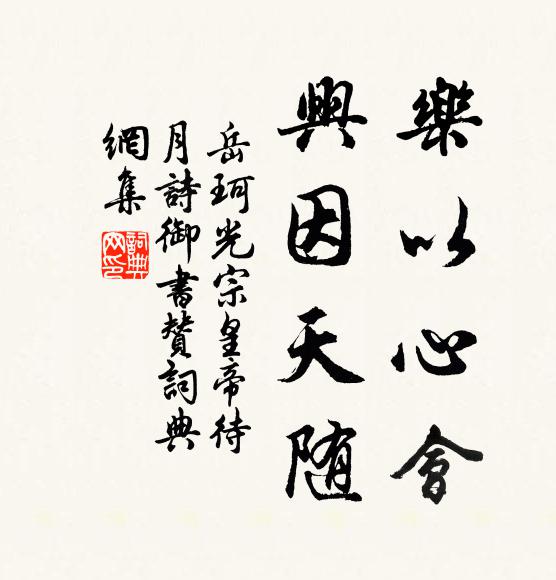 樂以心會
興因天随
岳珂光宗皇帝待
月詩御書贊詞典
網集
詞典
网印